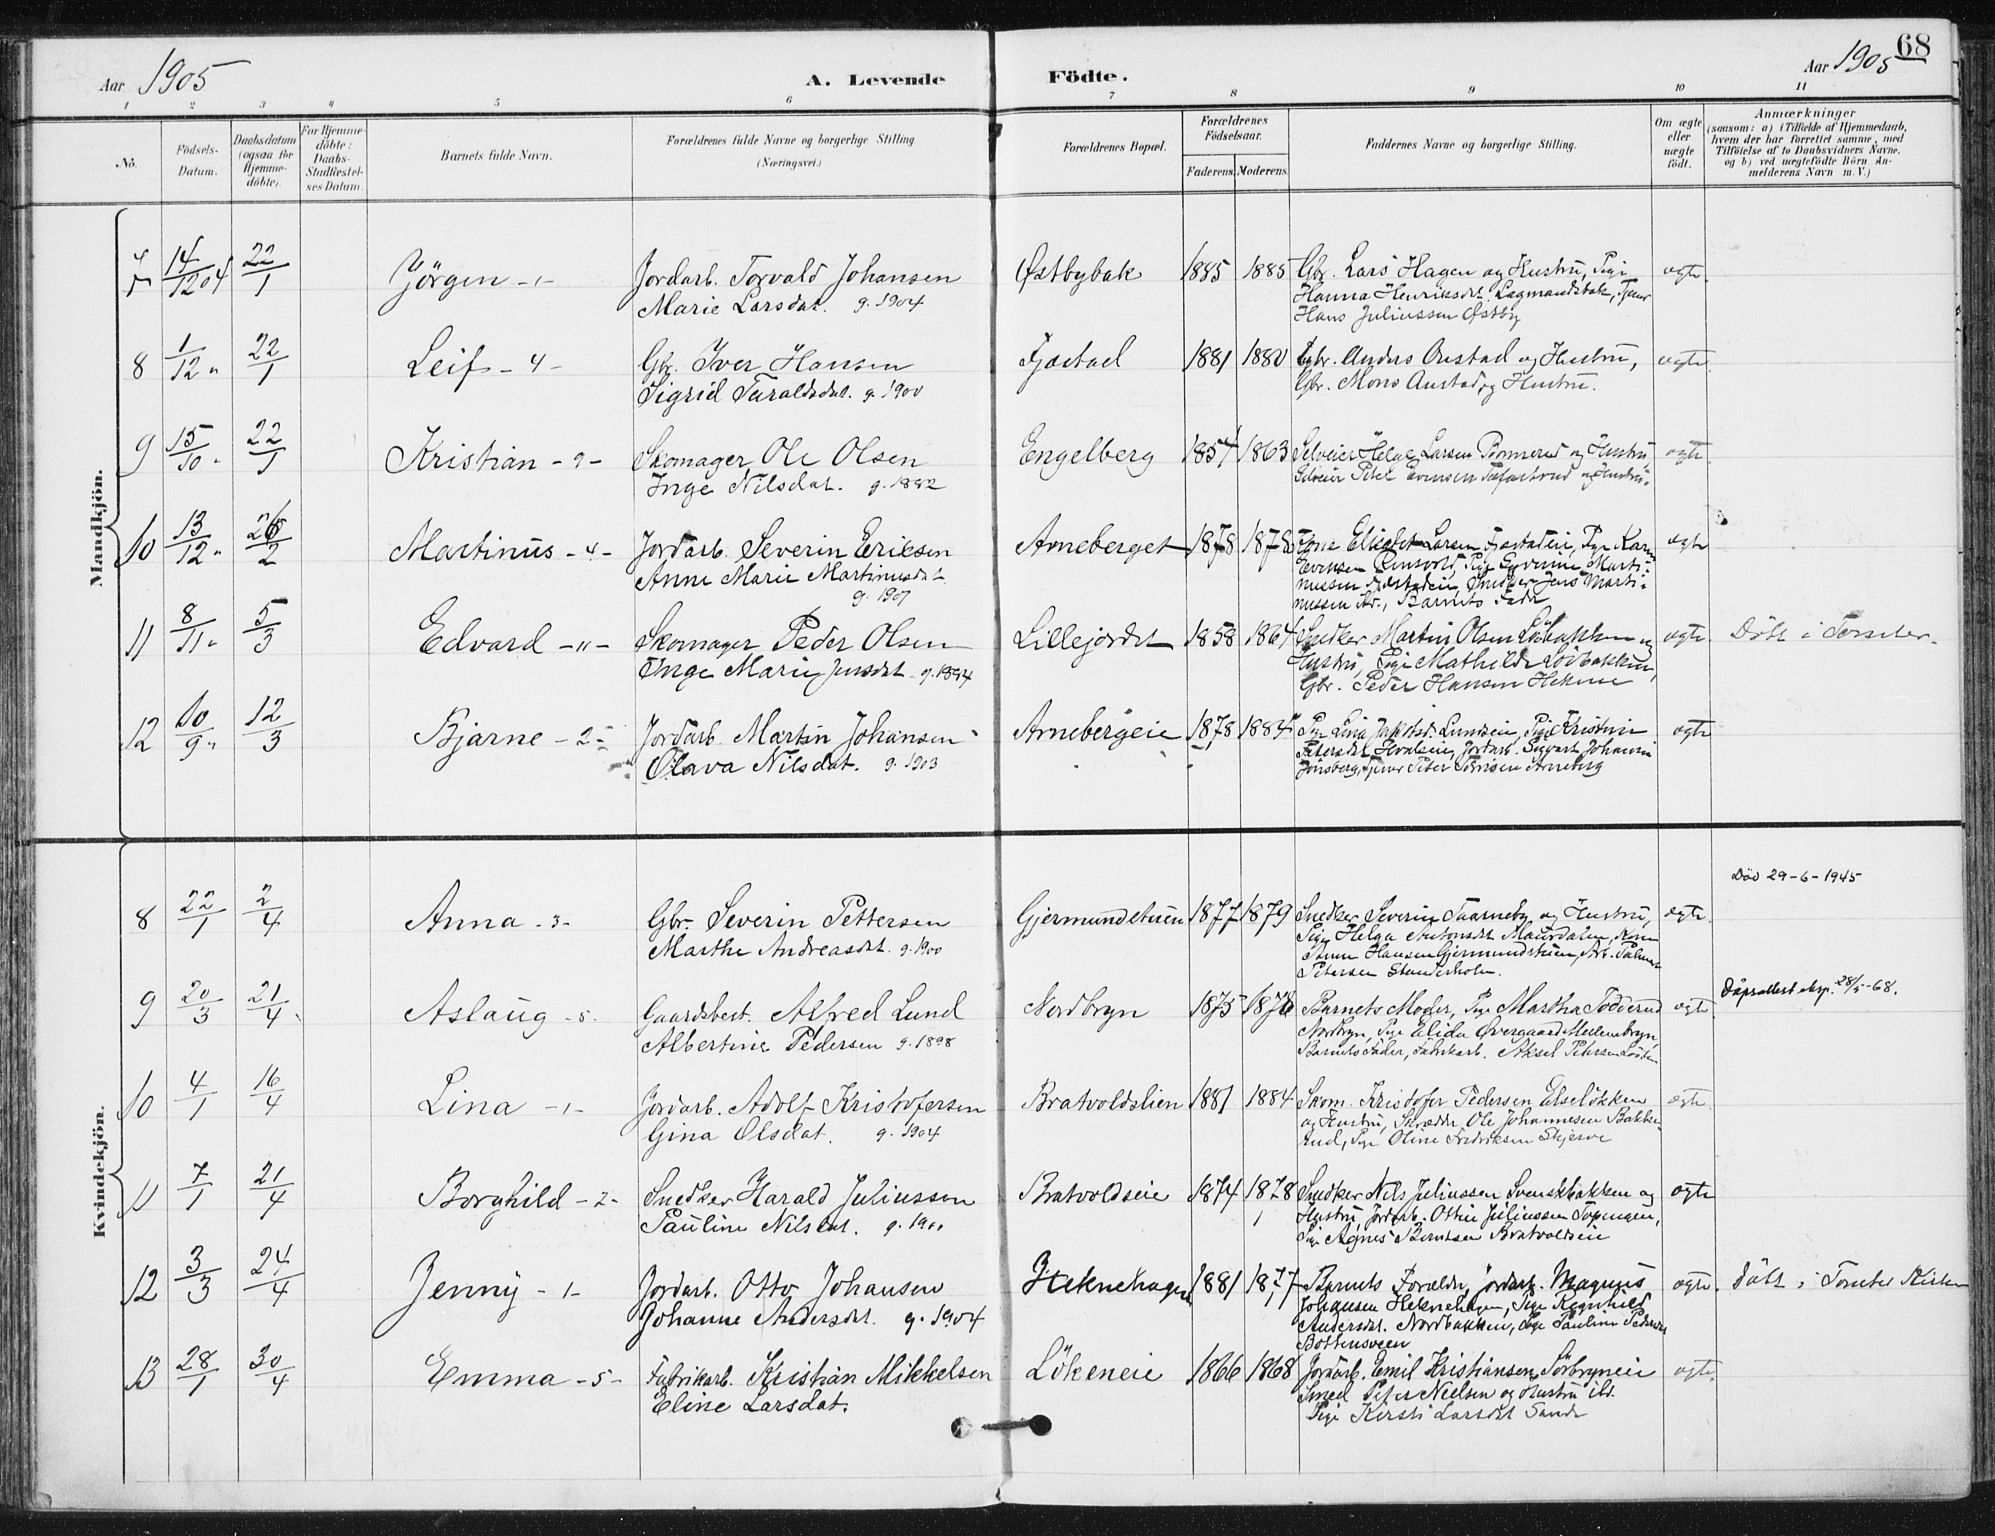 68
Aar 1905 A. Levende Födte. Aar 1905
1 2 3 4 5 6 7 8 9 10 11
No. Födsels-Datum. Daabsdatum (ogsaa for Hjemme-döbte). For Hjemme-döbte: Daabs-Stadfæstel-ses Datum. Barnets fulde Navn. Forældrenes fulde Navne og borgerlige Stilling (Næringsvei.) Forældrenes Bopæl. Forældrenes Födselsaar. Faderens. Moderens. Faddernes Navne og borgerlige Stilling. Om ægte eller uægte födt. Anmærkninger (saasom: a) i Tilfælde af Hjemmedaab, hvem der har forrettet samme, med Tilföielse af to Daabsvidners Navne, og b) ved uægtefödte Börn An-melderens Navn m. V.)
Mandkjön.
14/12 04 22/1 Jörgen - 1 - Jordarb. Torvald Johansen Østbybak 1885 1885 Gbr. Lars Hagen og Hustru, Pige ægte
Marie Larsdat. g. 1904 Hanna Henriksdt. Lagmandsbak, Tjener
Hans Juliussen Østby
8 1/12 " 22/1 Leif - 4 - Gbr. Iver Hansen Fjæstad 1881 1880 Gbr. Anders Austad og Hustru, ægte
Sigrid Taraldsdat. g. 1900 Gbr. Mons Austad og Hustru.
9 15/10 " 22/1 Kristian - 9 - Skomager Ole Olsen Engelberg 1854 1863 Selveier Helge Larsen og Hustru ægte
Inge Nilsdat. g. 1882 Selveier Peter og Hustru.
10 13/12 " 26/2 Martinus - 4 - Jordarb. Severin Eriksen Arneberget 1878 1878 Kone Elisabet Larsen Fjæstadeie, Pige Karen ægte
Anne Marie Martinusdat. Pige Marti-
g. 1901 nussen Fjæstadeie, Snedker Jens Marti-
nussen Barnets Fader
11 8/11 " 5/3 Edvard - 11 - Skomager Peder Olsen Lillejordet 1858 1864 Snedker Martin Olsen Löbakken og ægte Döbt i
Inge Marie Jensdt. g. 1884 Hustru, Pige Mathilde Löbakken,
Gbr. Peder Hansen Hekne
12 10/9 " 12/3 Bjarne - 2 - Jordarb. Martin Johansen Arnebergeie 1878 1884 Pige Lina Lundeie, Pige Kristine ægte
Olava Nilsdat. g. 1903 Petersdt. Jordarb. Sigvart Johansen
Jönsberg, Tjener Peter Arneberg
Kvindekjön.
Död 29-6-1945
8 22/1 2/4 Anna - 3 - Gbr. Severin Pettersen Gjermundstuen 1877 1879 Snedker Severin Taarneby og Hustru, ægte.
Marthe Andreasdt. g. 1900 Pige Helga Antonsdt. Kone
Anne Hansen Gjermundstuen, Arb. Palmer
Petersen
28/5-68.
9 20/3 21/4 Aslaug - 5 - Gaardsbest. Alfred Lund Nordbryn 1875 1876 Barnets Moder, Pige Martha ægte
Albertine Pedersen g. 1898 Nordbryn, Pige Elida Övergaard Mellembryn,
Barnets Fader, Fabrikarb. Aksel Petersen
10 4/1 16/4 Lina - 1 - Jordarb. Adolf Kristofersen Bratvoldslien 1881 1884 Skom. Kristofer Pedersen Elselökken ægte
Gina Olsdat. g. 1904 og Hustru, Skrædder Ole Johannesen Bakke-
rud, Pige Oline Fredriksen Skjerve
11 7/1 21/4 Borghild - 2 - Snedker Harald Juliussen Bratvoldseie 1874 1878 Snedker Nils Juliussen Svenskbakken og ægte
Pauline Nilsdat. g. 1900 Hustru, Jordarb. Ottin Juliussen Topengen,
Pige Agnes Berntsen Bratvoldseie
12 3/3 24/4 Jenny - 1 - Jordarb. Otto Johansen Heknehagen 1881 1877 Barnets Forældre, Jordarb. Magnus ægte. Döbt i Tomter Kirke
Johanne Andersdt. g. 1904 Johansen Heknehagen, Pige Ragnhild
Andersdt. Nordbakken, Pige Pauline
Bottensveen
13 28/1 30/4 Emma - 5 - Fabrikarb. Kristian Mikkelsen Lökeneie 1866 1868 Jordarb. Emil Kristiansen Sörbryneie ægte.
Eline Larsdat. Smed Peter Nielsen og Hustru ibd.
Pige Kirsti Larsdt. Sande